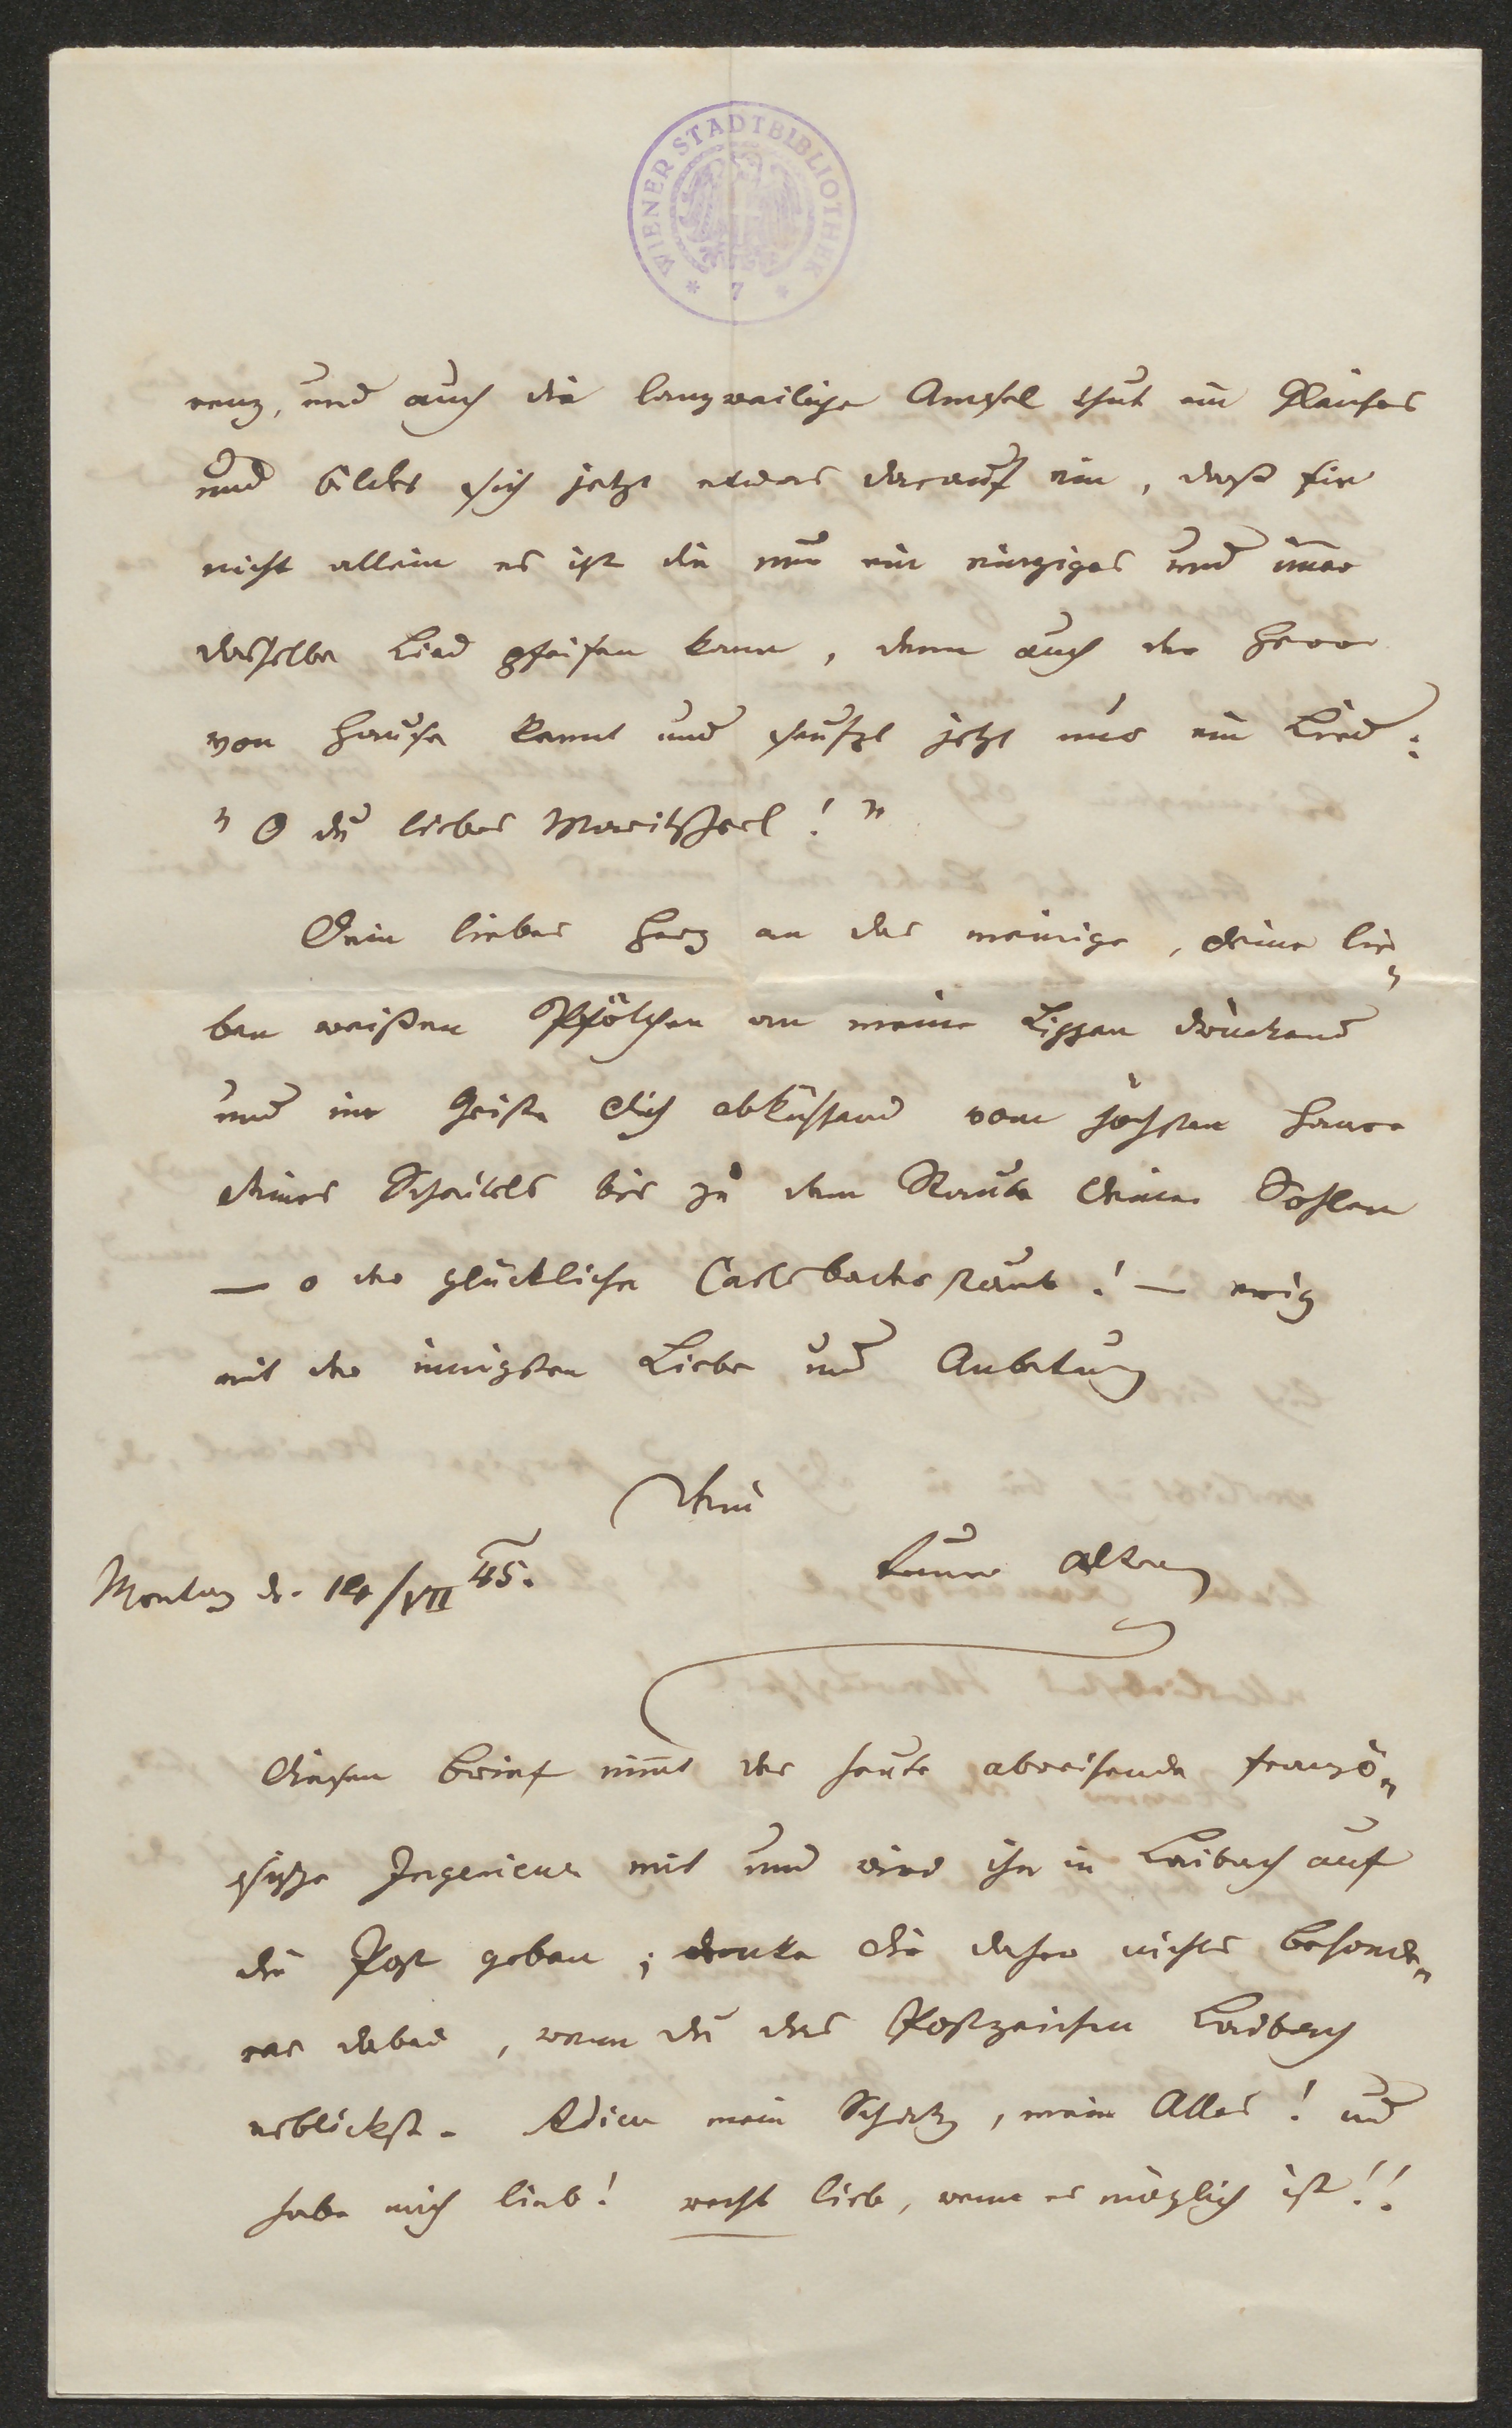 WIENER STADTBIBLIOTHEK
* 7 *
renz, und auch die langweilige Amsel thut ein Gleiches
und bildet sich jetzt etwas darauf ein, daß sie
nicht allein es ist die nur ein einziges und im̅er
dasselbe Lied pfeifen kann, denn auch der Herr
von Hause kennt und seufzt jetzt nur ein Lied:
"O du liebes Moritzherl!"
Dein liebes Herz an das meinige, deine lie„
ben weißen Pfötchen an meine Lippen drückend
und im Geiste dich abküssend vom höchsten Haare
deines Scheitels bis zu dem Staube deiner Sohlen
— o der glückliche Carlsbaderstaub! — ewig
mit der innigsten Liebe und Anbetung
Dein
treuer
Montag d. 14/VII 45.
Diesen Brief nim̅t der heute abreisende franzö„
sische Ingenieur mit und wird ihn in Laibach auf
die Post geben; denke dir daher nichts besonde„
res dabei, wenn du das Postzeichen Laibach
erblickst. Adieu mein Schatz, mein Alles! und
habe mich lieb! recht lieb, wenn es möglich ist!!